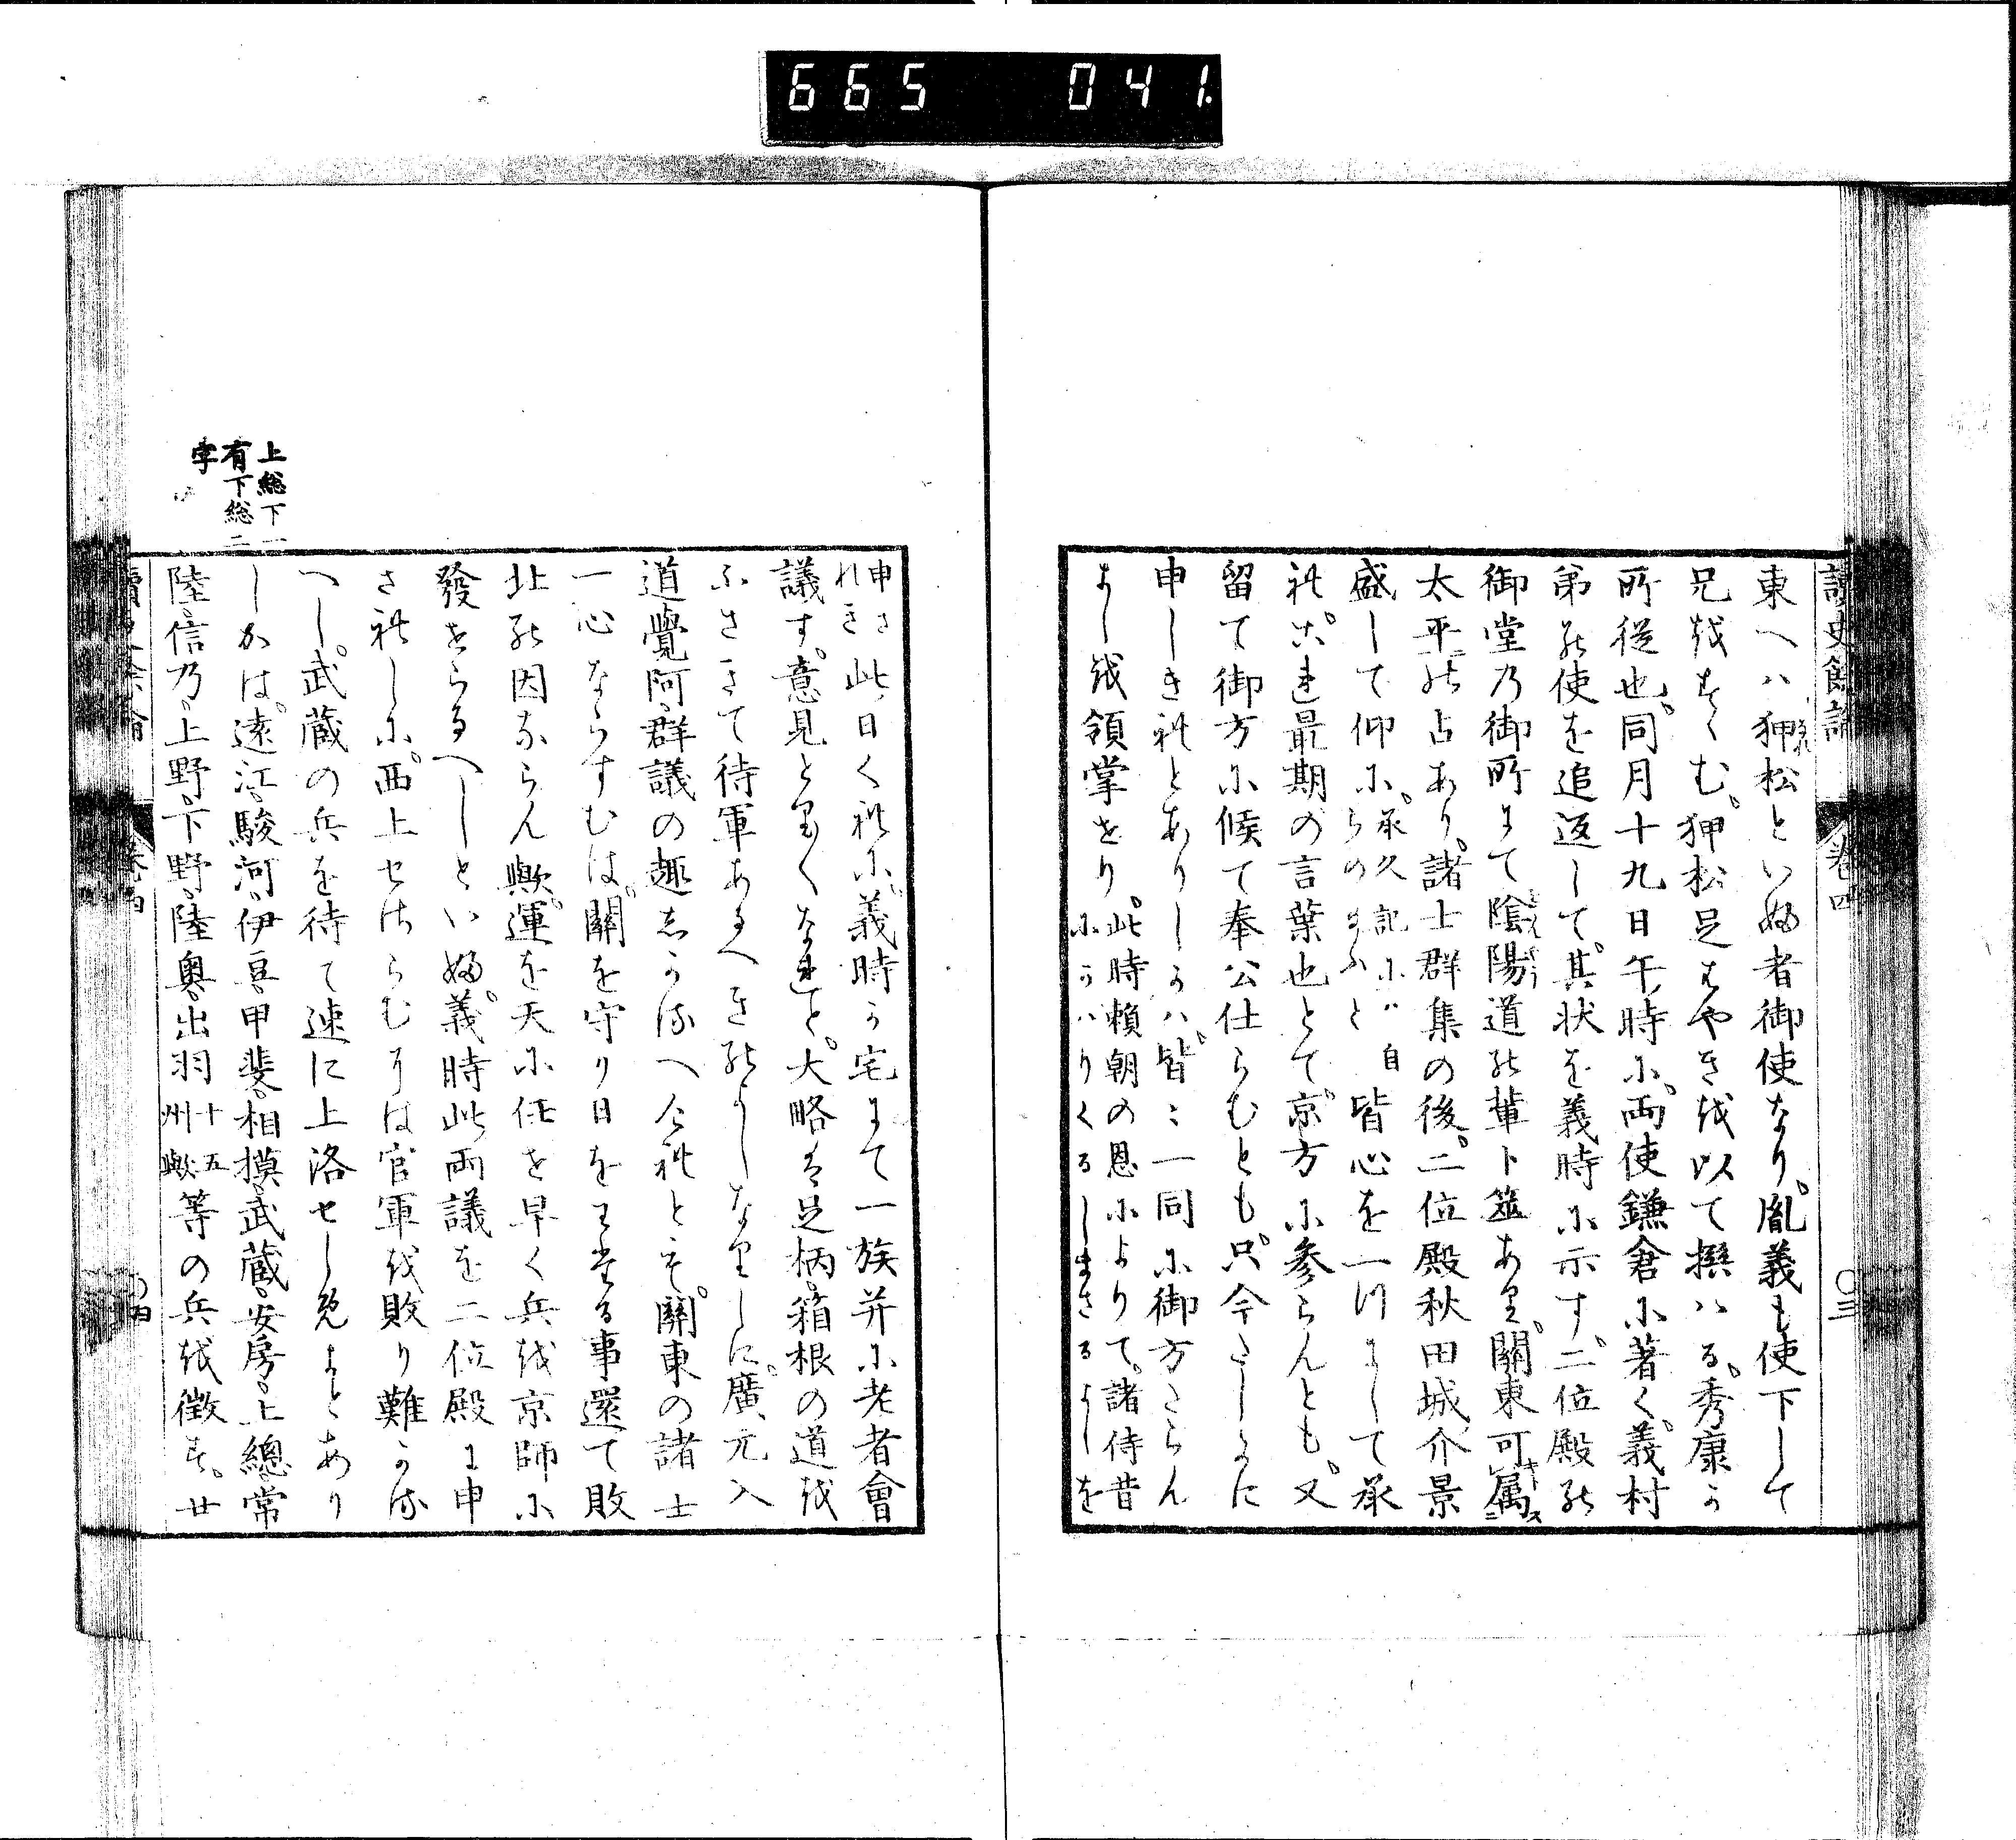 665 041.
讀史餘論 卷四 〇三
東へハ狎松といふ者御使なり。胤義も使下して
兄をすゝむ。狎松足はやきを以て撰ハる。秀康か
所従也。同月十九日午時に。両使鎌倉に著く。義村
弟の使を追返して。其状を義時に示す。二位殿の
御堂乃御所にて陰陽道の輩卜筮あり。關東可属
太平の占あり。諸士群集の後。二位殿秋田城介景
盛して仰に。承久記にハ自らのたまふと皆心を一つにして承
れ。これ最期の言葉也とて。京方に参らんとも。又
留て御方に候て奉公仕らむとも。只今たしかに
申しきれとありしかハ。皆〻一同に御方たらん
よしを領掌せり。此時頼朝の恩によりて。諸侍昔にかハりくるしまさるよしを
申されき此日くれに。義時か宅にて一族并に老者會
議す。意見とり〳〵なれと。大略は足柄箱根の道を
ふさきて待軍あるへきのよしなりしに。廣元入
道覺阿。群議の趣しかるへくれとも。關東の諸士
一心ならすむは。關を守り日をわたる事還て敗
北の因ならん歟。運を天に任せ早く兵を京師に
發せらるへしといふ。義時此両議を二位殿に申
されしに。西上せさらむには官軍を敗り難かる
へし。武蔵の兵を待て速に上洛せしめよとあり
しかは。遠江駿河伊豆甲斐相摸武蔵安房上總常
陸信乃上野下野陸奥出羽十五州歟等の兵を徴す。廿
上総下一
有下総二
字
讀史餘論 卷四 〇四